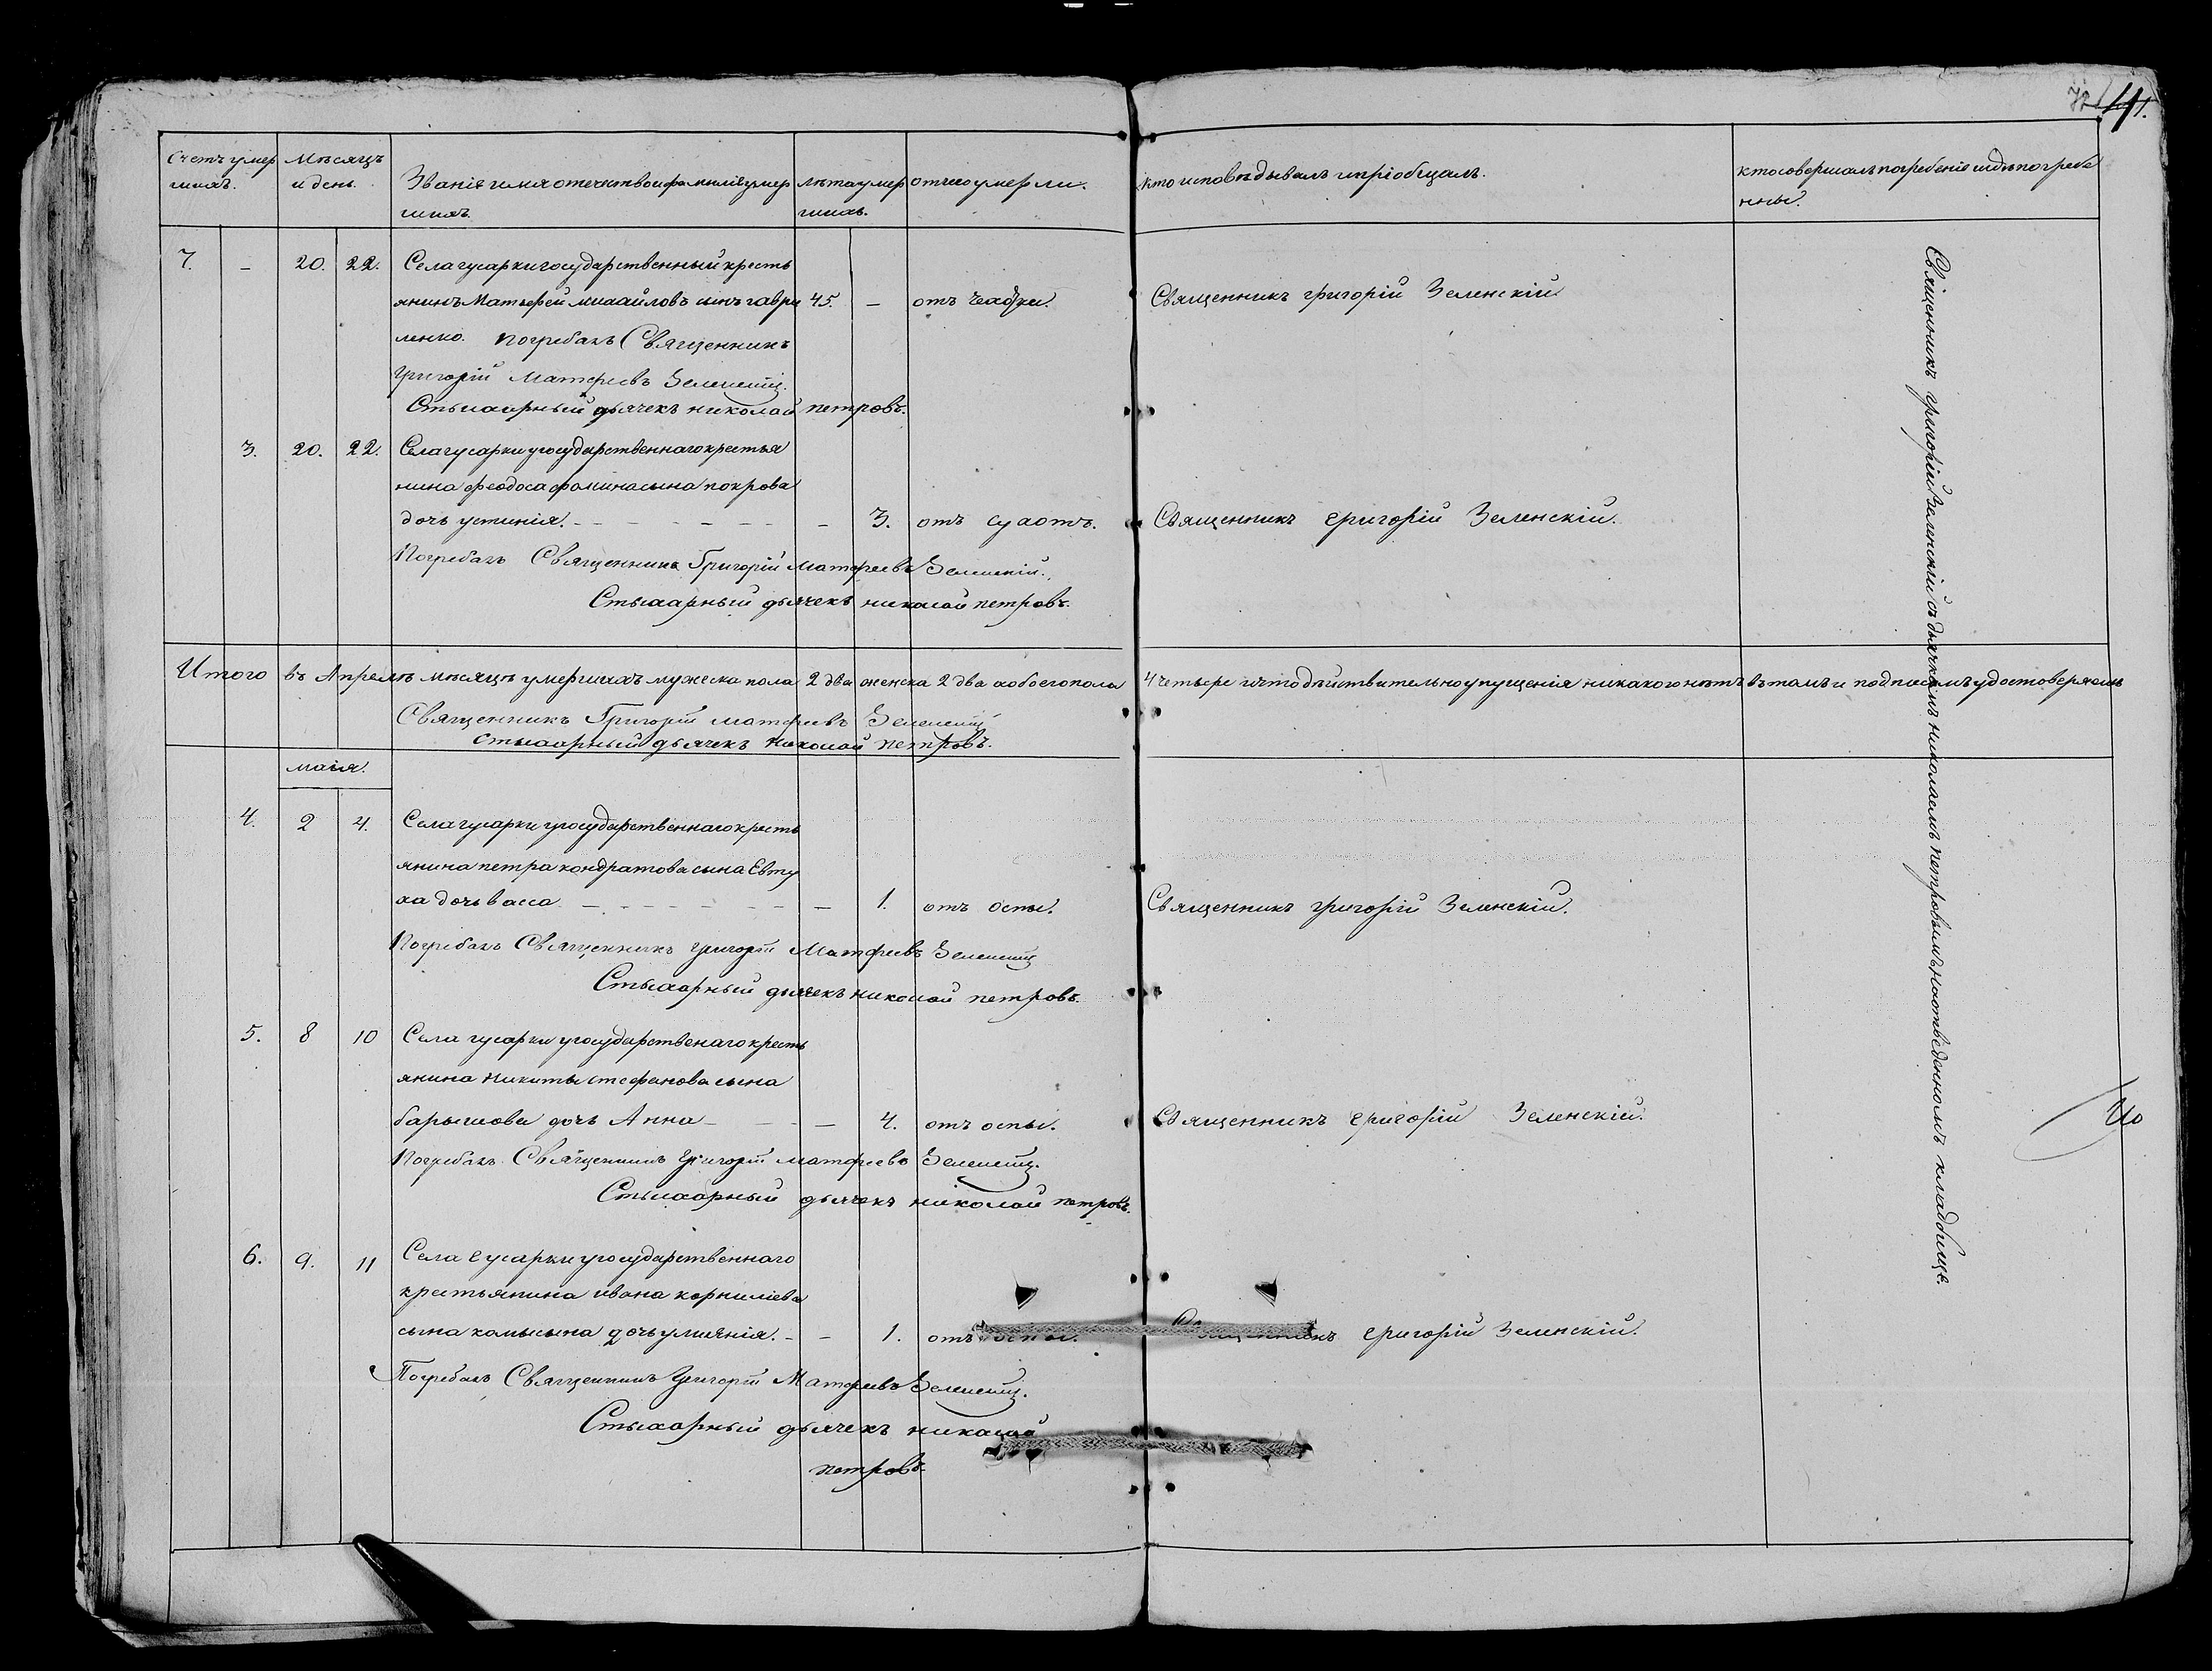 41.
Счетъ умер
шихъ.
Мѣсяцъ
и день.
Званіе имя отечество и фамилія умер
шихъ.
лѣта умер
шихъ.
отчего умерли.
кто исповѣдывалъ и пріобщалъ.
кто совершалъ погребеніе и гдѣ погребе
нны.
7. - 20. 22. Села гусарки государственный кресть
янинъ Матьфей михайловъ сынъ гаври 45. - отъ чахотки. Священникъ григорій Зеленскій.
ленко. погребалъ Священникъ
Григорій Матфеевъ Зеленскій.
Стыхарный дьячекъ николай петровъ.
3. 20. 22. Села гусарки у государственнаго крестья
нина феодоса фомина сына покрова
дочь устинія. - 3. отъ сухотъ. Священникъ григорій Зеленскій.
Погребалъ Священникъ Григорій Матфеевъ Зеленскій.
Стыхарный дьячекъ николай петровъ.
Итого въ Апрелѣ мѣсяцѣ умершихъ мужеска пола 2 два женска 2 два а обоего пола 4 четыре и что действительно упущенія никакого нѣтъ въ томъ и подписомъ удостоверяемъ
Священникъ Григорій матфеевъ Зеленскій
стыхарный дьячекъ Николай петровъ.
маія.
4. 2 4. Села гусарки у государственнаго кресть
янина петра кондратова сына Евту
ха дочь васса - 1. отъ оспы. Священникъ григорій Зеленскій.
Погребалъ Священникъ григорій Матфеевъ Зеленскій
Стыхарный дьячекъ николай петровъ.
5. 8 10 Села гусарки у государственаго кресть
янина Никиты стефанова сына
барышова дочь Анна - 4. отъ оспы. Священникъ григорій Зеленскій.
Погребалъ Священникъ Григорій матфеевъ Зеленскій.
Стыхарный дьячекъ николай петровъ.
6. 9. 11 Села гусарки у государственнаго
крестьянина ивана корниліева
сына комысына дочь улиянія. - 1. отъ оспы. Священникъ григорій Зеленскій.
Погребалъ Священникъ Григорій Матфеевъ Зеленскій.
Стыхарный дьячекъ николай
петровъ.
Священникъ григорій Зеленскій съ дьячкомъ николаемъ петровымъ на отведенномъ кладбище.